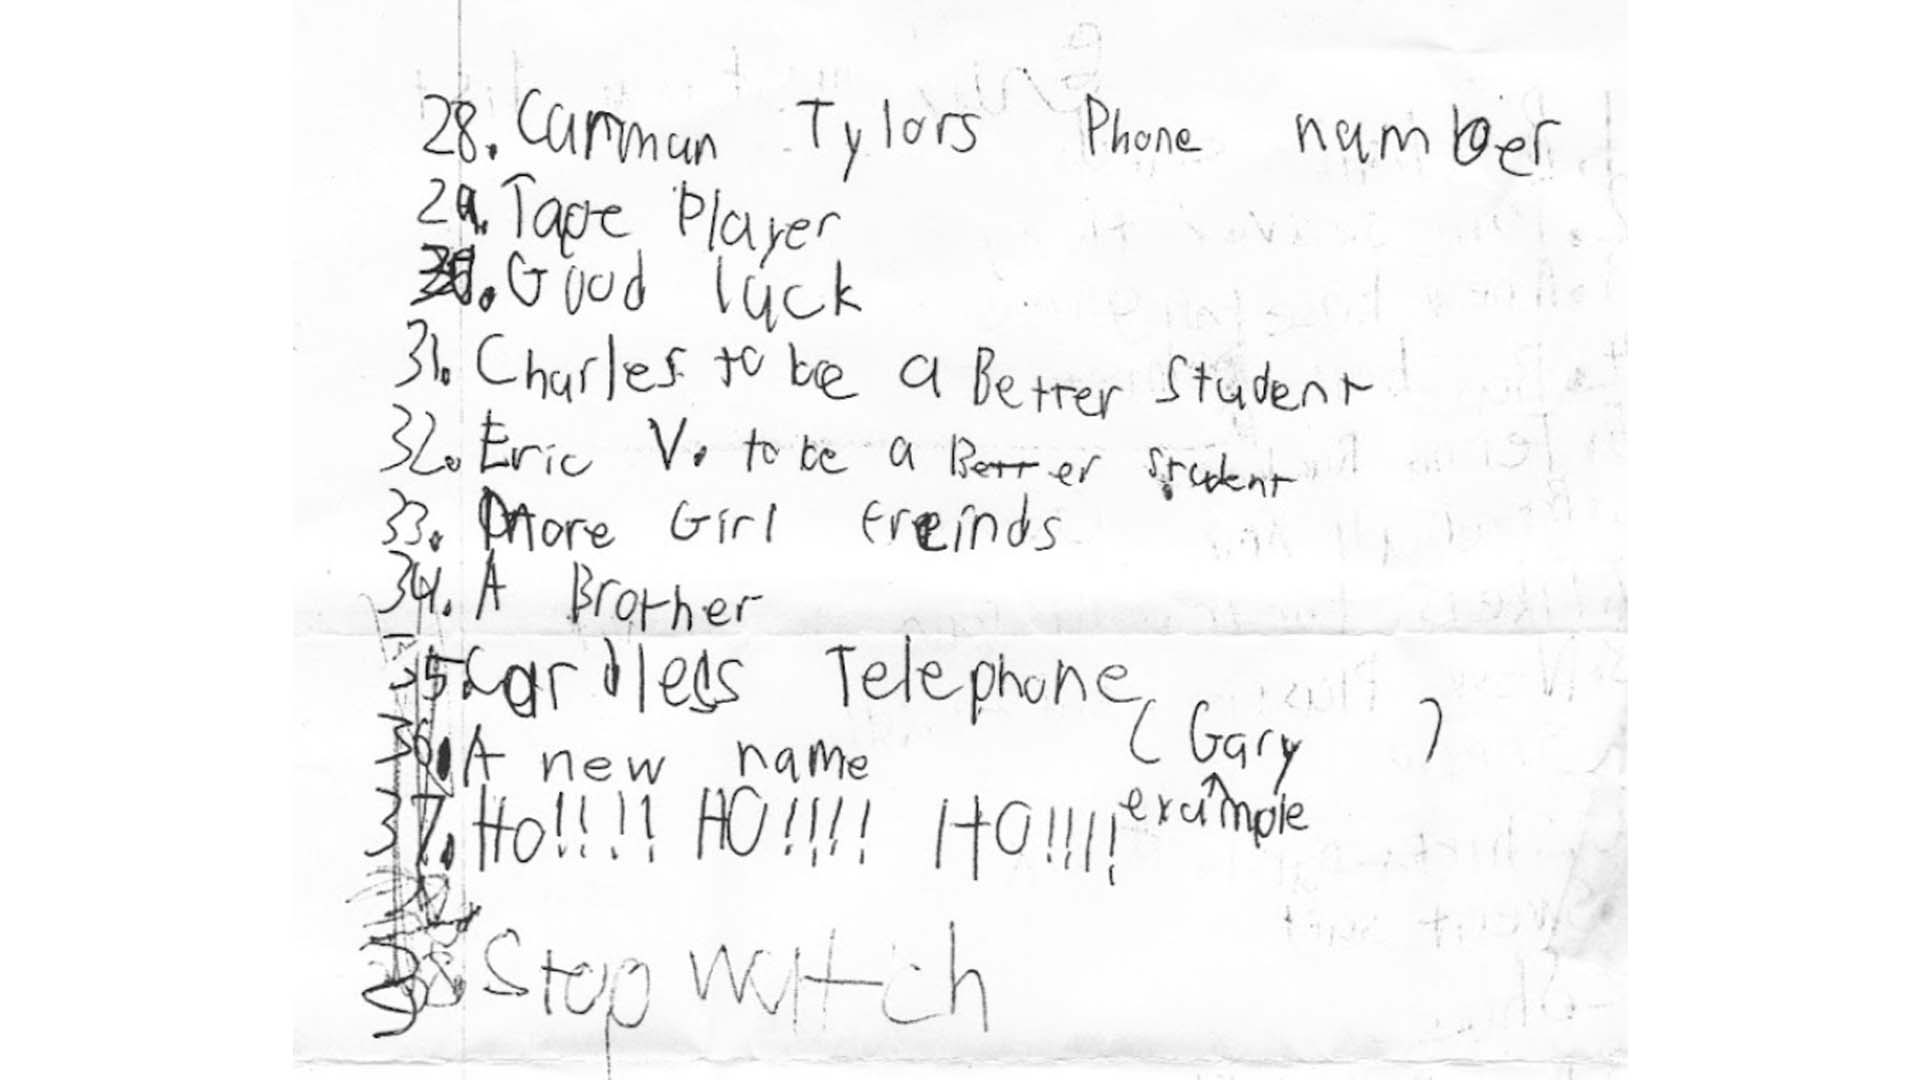 28. Camman Tylors Phone number
29. Tape Player
30. Good luck
31. Charles to be a Better Student
32. Eric V. to be a Better Student
33. More Girl freinds
34. A Brother
35. Cordless Telephone
36. A new name (Gary )
example
37. Ho!!!! HO!!!! HO!!!!
38 Stop watch